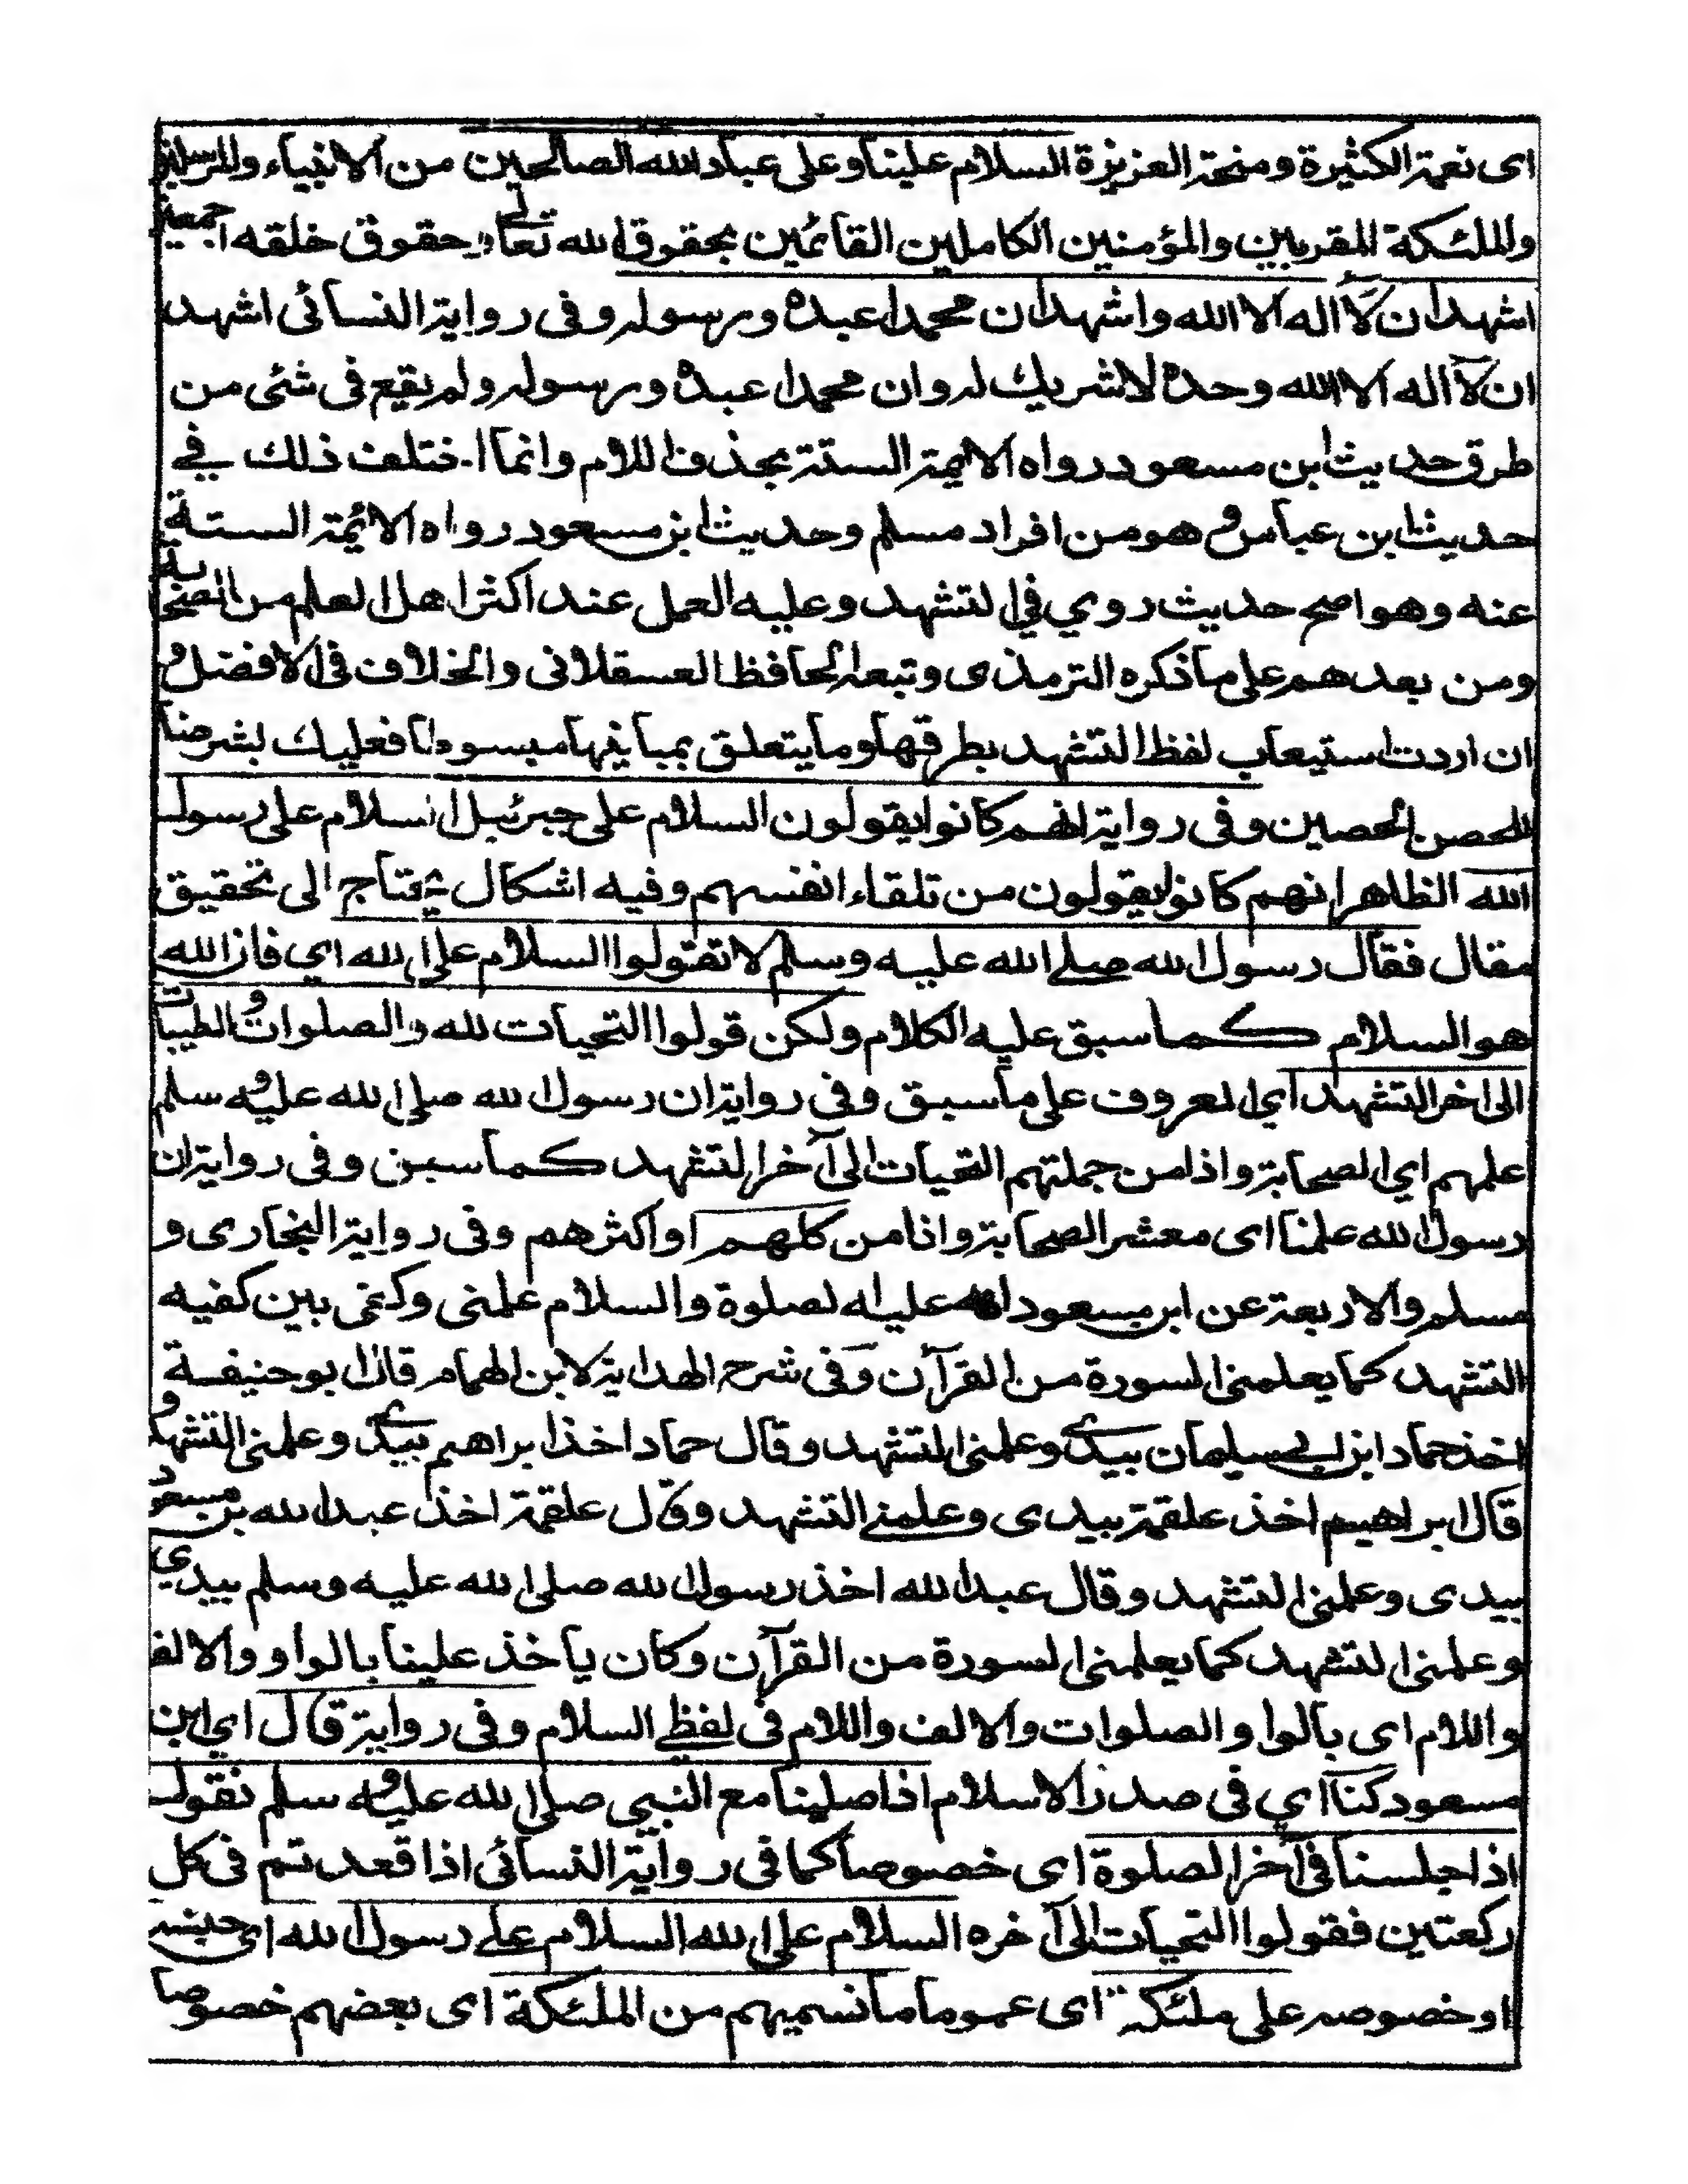 اى نعمته الكثيرة ومنحته العزيزة السلام علينا وعلى عباد الله الصالحين من الانبياء والمرسلين
والملئكة المقربين والمؤمنين الكاملين القائمين بحقوق الله تعالى وحقوق خلقه اجمعين
اشهد ان لا اله الا الله واشهد ان محمدا عبده ورسوله وفى رواية النسائى اشهد
ان لا اله الا الله وحده لا شريك له وان محمدا عبده ورسوله ولم يقع فى شئى من
طرق حديث ابن مسعود رواه الايمة الستة بحذف اللام وانما اختلف ذلك في
حديث ابن عباس وهو من افراد مسلم وحديث ابن مسعود رواه الائمة الستة
عنه وهو اصح حديث روي في التشهد وعليه العمل عند اكثر اهل العلم من الصحابة
ومن بعدهم على ما ذكره الترمذى وتبعه الحافظ العسقلانى والخلاف فى الافضل و
ان اردت استيعاب لفظ التشهد بطرقها وما يتعلق بمبانيها مبسوطا فعليك بشرحنا
للحصن الحصين وفى رواية انهم كانوا يقولون السلام على جبرئيل السلام على رسول
الله الظاهر انهم كانوا يقولون من تلقاء انفسهم وفيه اشكال يحتاج الى تحقيق
مقال فقال رسول الله صلے الله عليه وسلم لا تقولوا السلام على الله اي فان الله
هو السلام كما سبق عليه الكلام ولكن قولوا التحيات لله والصلوات والطيبات
الى اخر التشهد اي المعروف على ما سبق وفى رواية ان رسول الله صلى الله عليه وسلم
علمهم اي الصحابة واذا من جملتهم التحيات الى آخر التشهد كما سبق وفى رواية ان
رسول الله علمنا اى معشر الصحابة وانا من كلهم او اكثرهم وفى رواية البخارى و
مسلم والاربعة عن ابن مسعود انه عليه الصلوة والسلام علمنى وكفى بين كفيه
التشهد كما يعلمنى السورة من القرآن وفى شرح الهداية لابن الهمام قال ابو حنيفة
اخذ حماد ابن ابي سليمان بيدي وعلمنى التشهد وقال حماد اخذ ابراهيم بيدي وعلمنى التشهد و
قال ابراهيم اخذ علقمة بيدى وعلمنے التشهد وقال علقمة اخذ عبد الله بن مسعود
بيدى وعلمنى التشهد وقال عبد الله اخذ رسول الله صلى الله عليه وسلم بيدي
وعلمنى التشهد كما يعلمنى السورة من القرآن وكان ياخذ علينا بالواو والالف
واللام اى بالوا والصلوات والالف واللام فى لفظ السلام وفى رواية قال اي ابن
مسعود كنا اي فى صدر الاسلام اذا صلينا مع النبي صلى الله عليه وسلم نقول
اذا جلسنا فى آخر الصلوة اى خصوصا كما فى رواية النسائى اذا قعدتم فى كل
ركعتين فقولوا التحيات الى آخره السلام على الله السلام علے رسول الله اى جنسه
او خصوصه على ملئكته اى عموما ما نسميهم من الملئكة اى بعضهم خصوصا